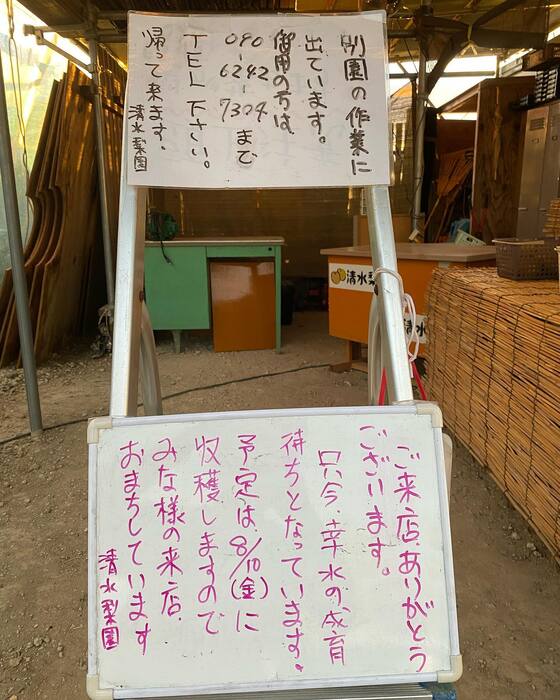 別園の作業に
出ています。
御用の方は
090-6242-7304まで
TEL下さい。
帰って来ます、
清水梨園
清水梨
清水
ご来店、ありがとう
ございます。
只今、幸水の成育
待ちとなっています。
予定は、8/10(金)に
収穫しますので
みな様の来店、
おまちしています
清水梨園